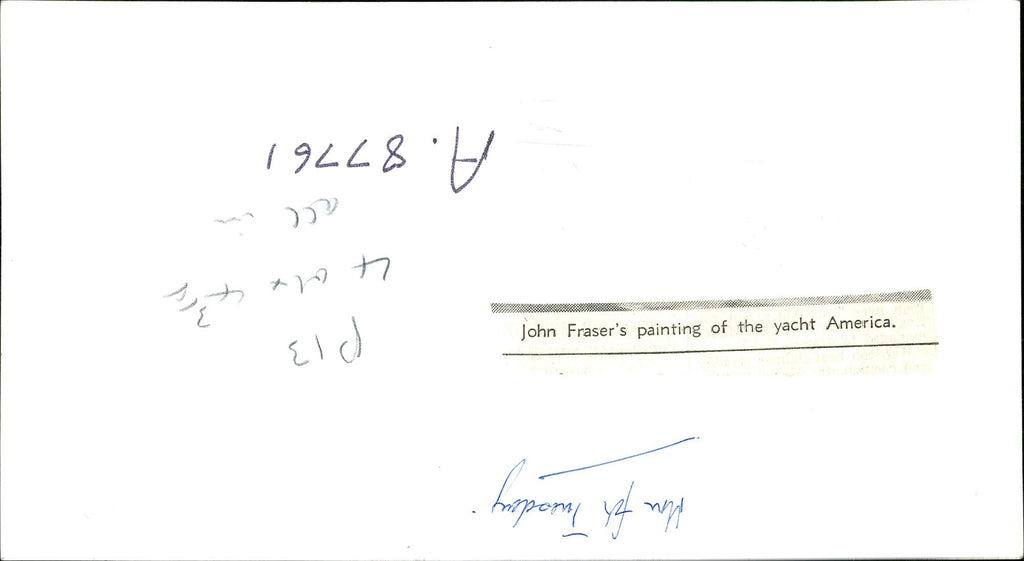 A. 87761
all in
4 col x 4 3/8
P13
John Fraser's painting of the yacht America.
for Tuesday.